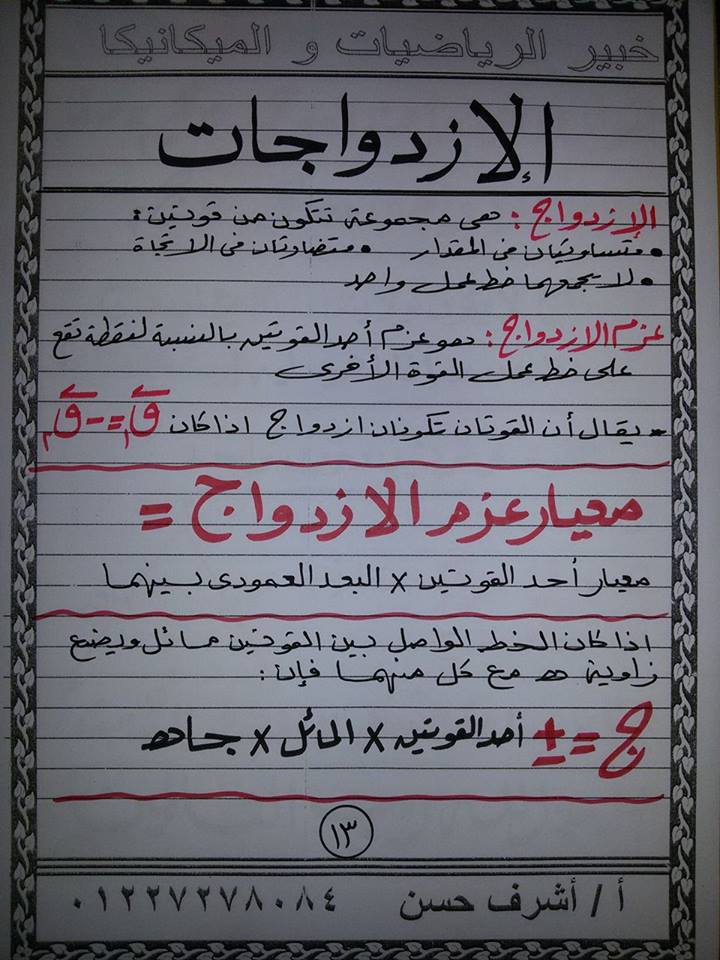 خبير الرياضيات و الميكانيكا
الإزدواجات
الإزدواج: هى مجموعة تتكون من قوتين:
• متساويتان فى المقدار • متضادتان فى الاتجاة
• لا يجمعهما خط عمل واحد
عزم الازدواج: هو عزم أحد القوتين بالنسبة لنقطة تقع
على خط عمل القوة الأخرى
• يقال أن القوتان تكونان ازدواج اذا كان ق١ = - ق٢
معيار عزم الازدواج =
معيار أحد القوتين × البعد العمودى بينهما
اذا كان الخط الواصل بين القوتين مائل ويصنع
زاوية هـ مع كل منهما فإن:
ج = ± أحد القوتين × المائل × جا هـ
١٣
أ / أشرف حسن ٠١٢٢٧٢٧٨٠٨٤